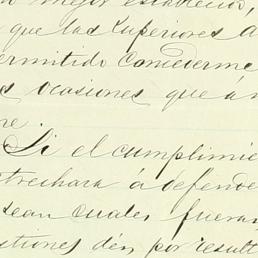 mejor establecio,
que las Superiores a
ermitido concederme
s ocasiones que á m
re.
Si el cumplimie
trechara á defende
sean cuales fueran
stiones den por result